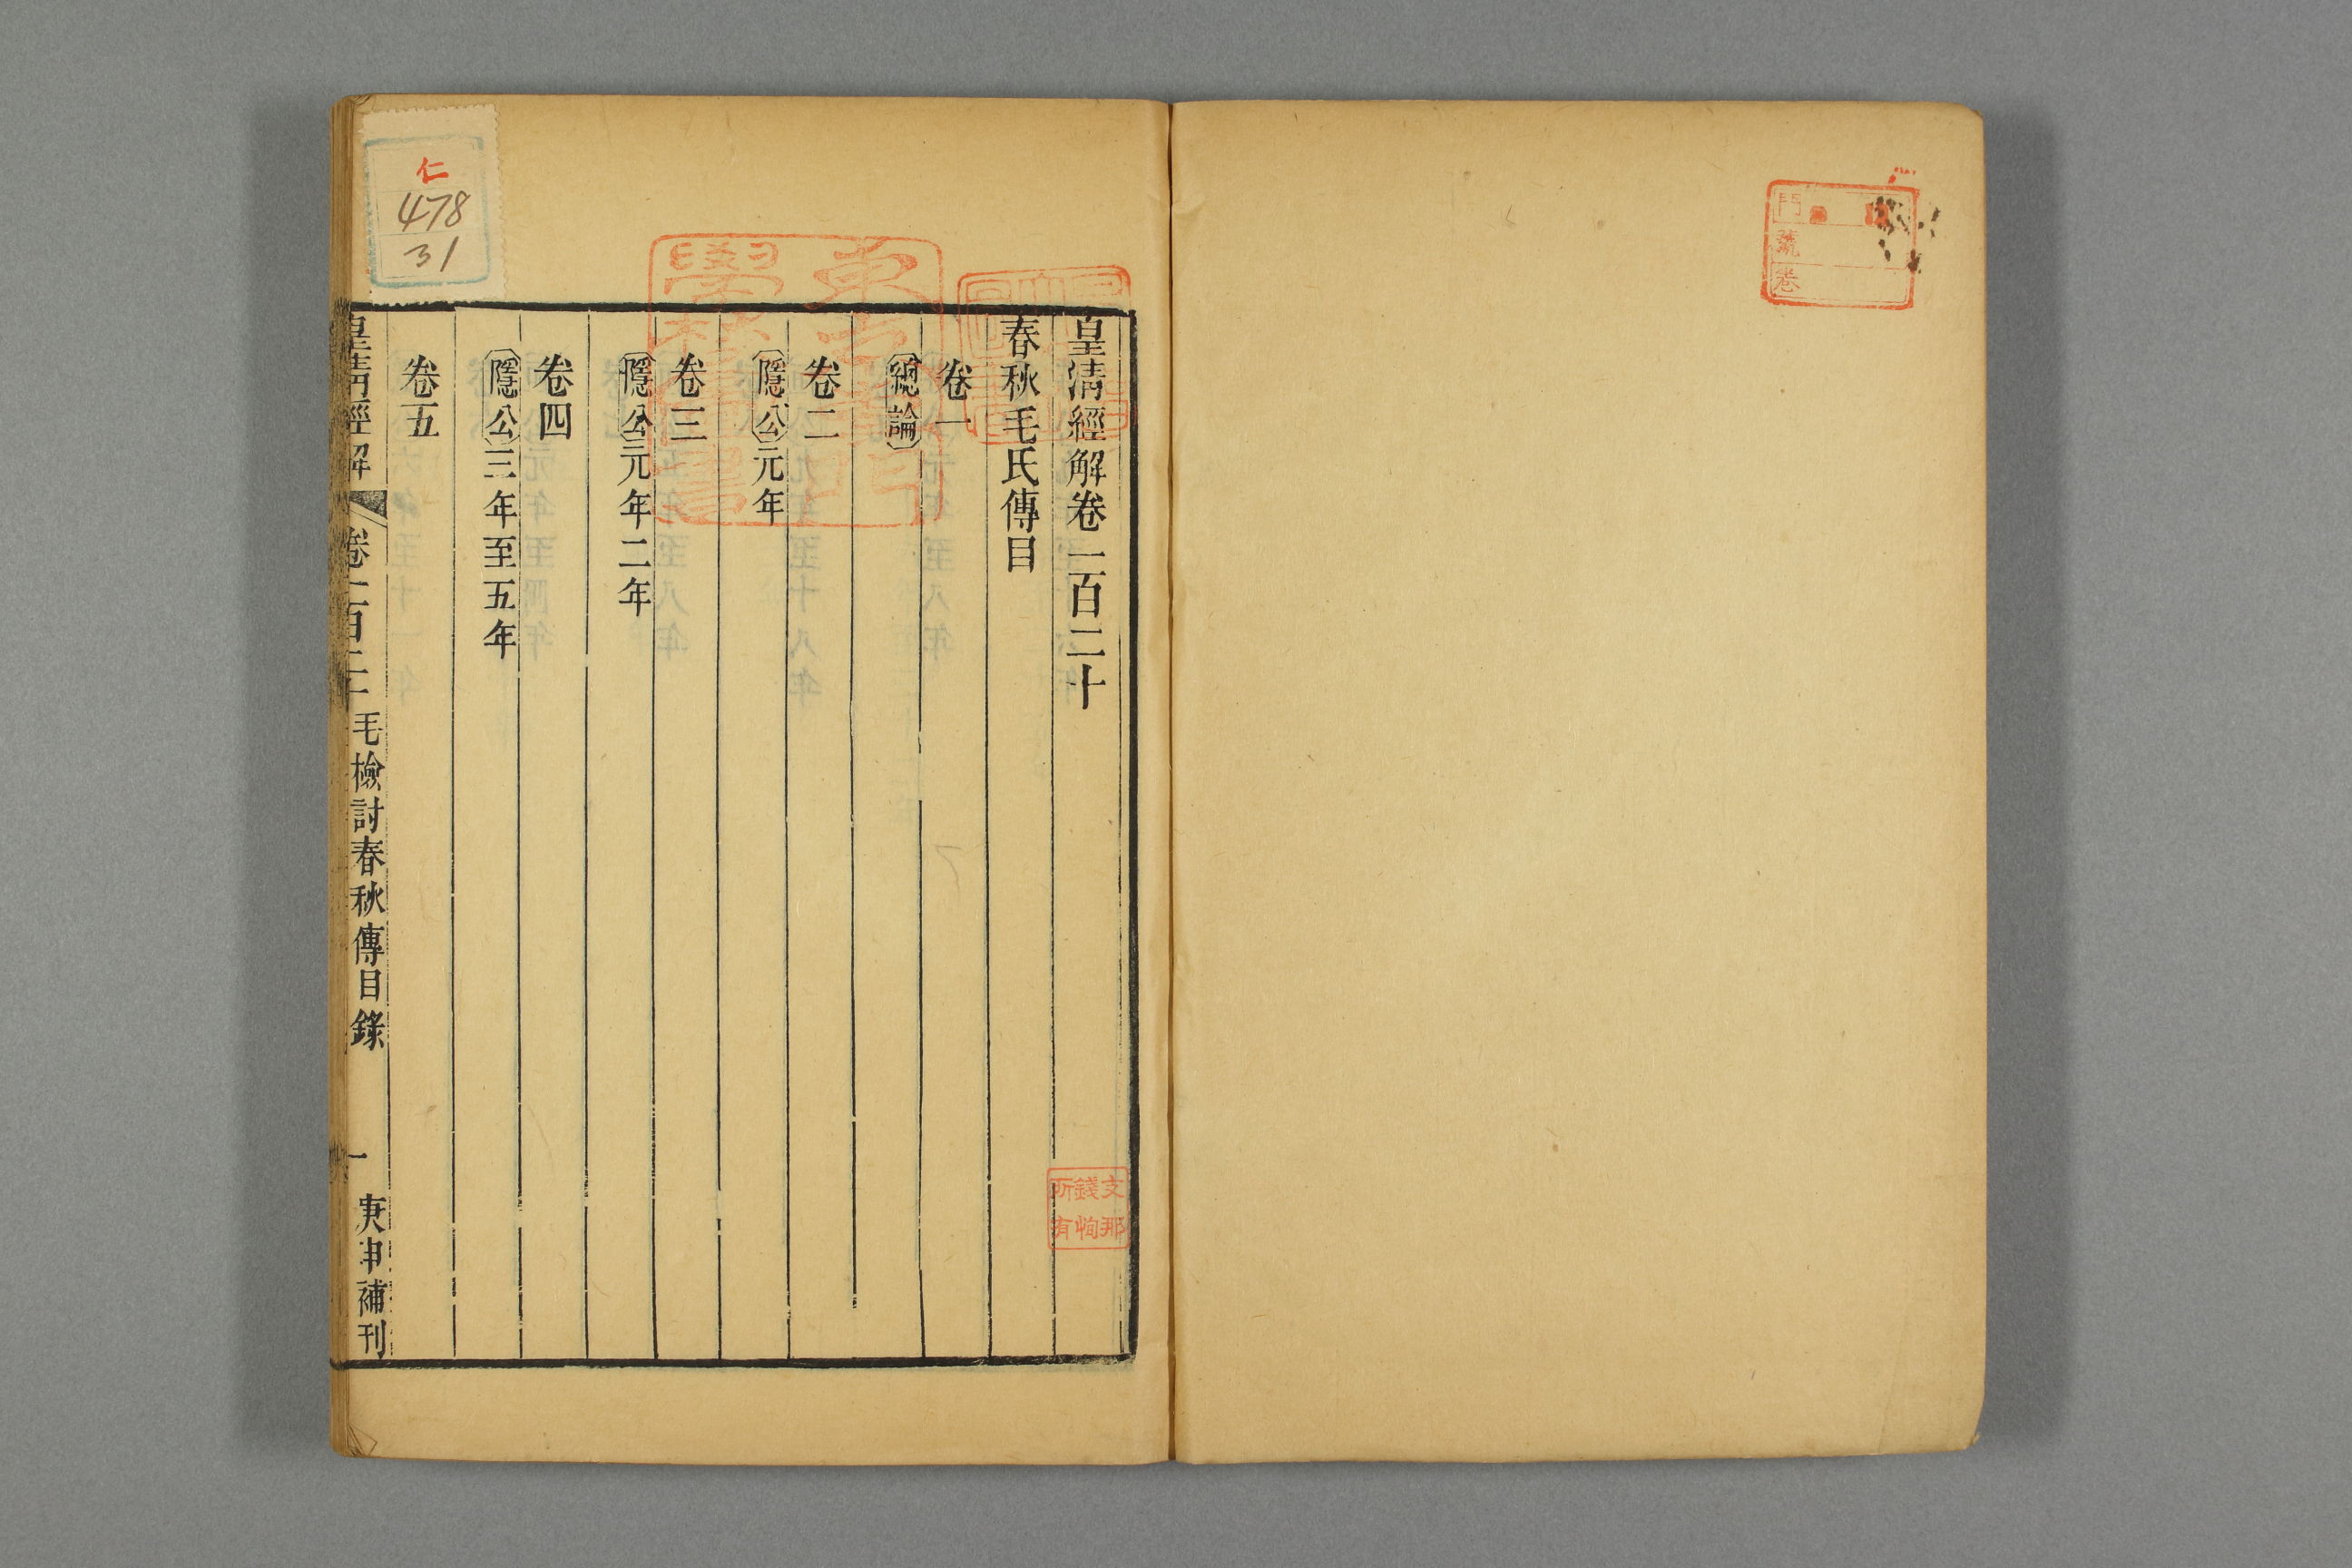 門
號
卷
皇清經解卷一百二十
春秋毛氏傳目
卷一
總論
卷二
隱公元年
卷三
隱公元年二年
卷四
隱公三年至五年
卷五
皇清經解 卷一百二十 毛檢討春秋傳目錄 一 庚申補刊
仁
478
31
支那
錢恂
所有